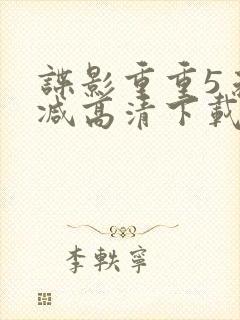 諜影重重5
减高清下載
李軼寧